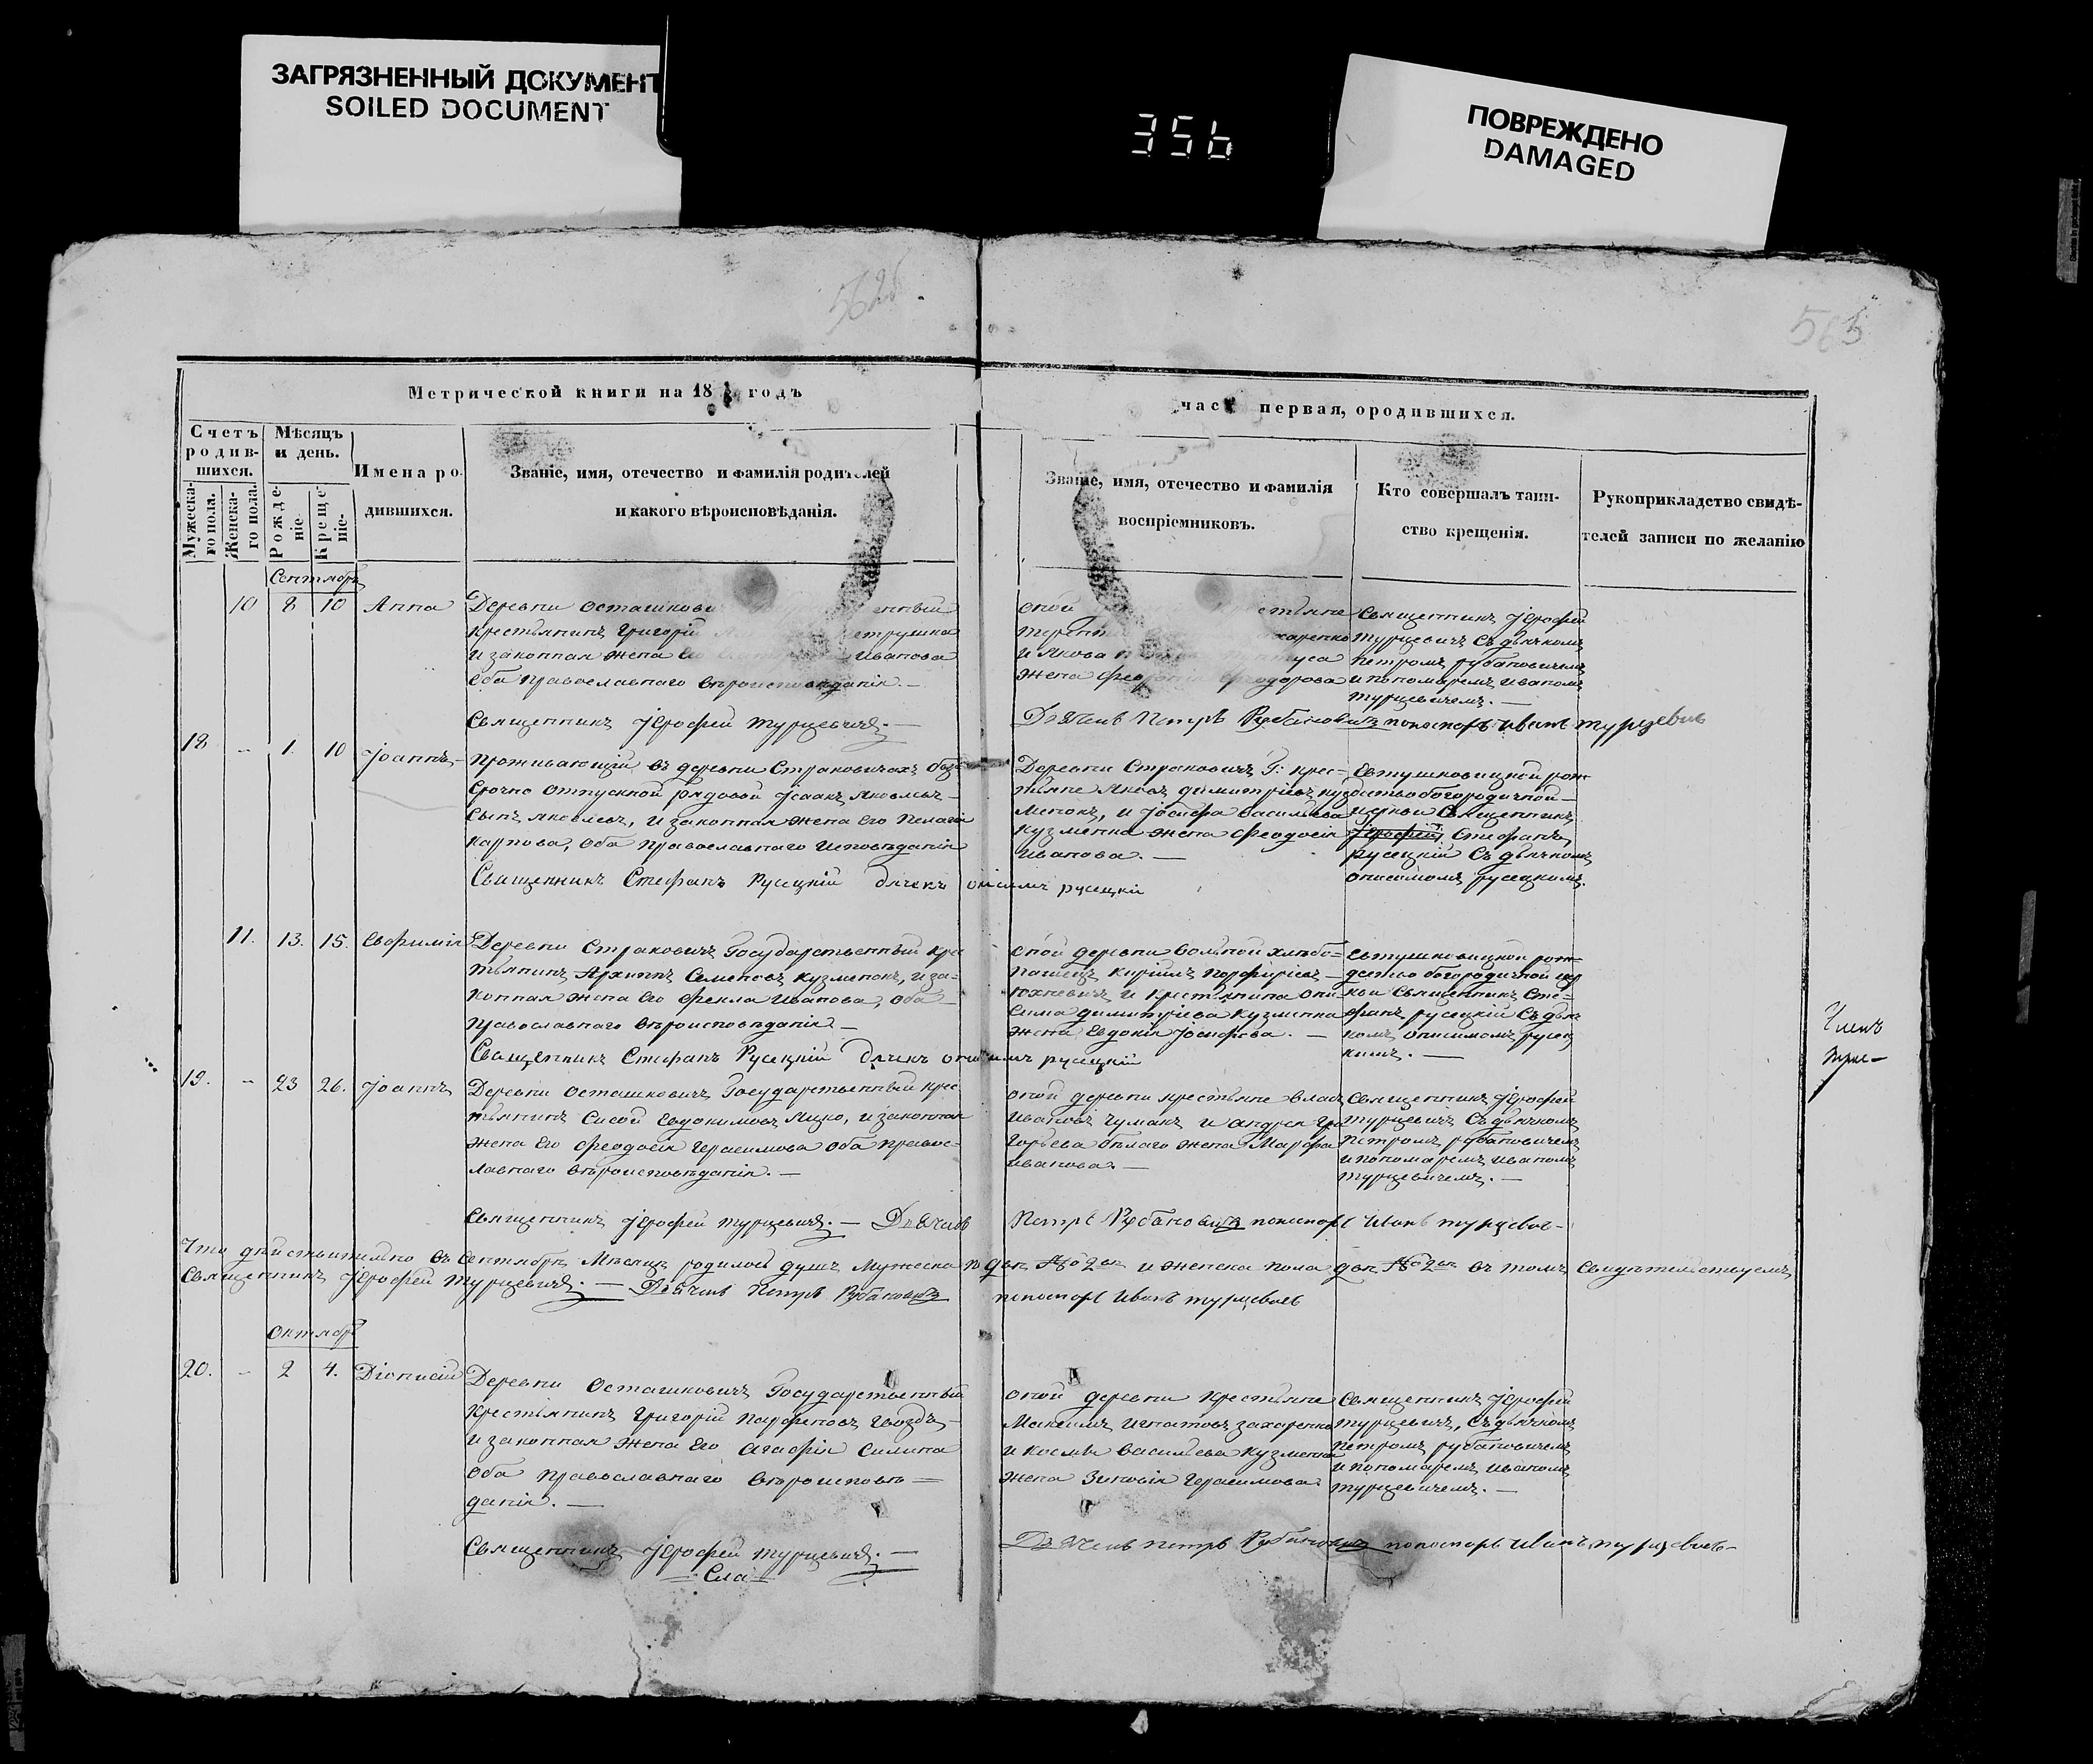 ЗАГРЯЗНЕННЫЙ ДОКУМЕНТ
SOILED DOCUMENT
356
ПОВРЕЖДЕНО
DAMAGED
563
Метрической книги на 18 годъ
часть первая, о родившихся.
Счетъ родив-шихся.
Мужеска-го пола.
Женска-го пола.
Мѣсяцъ и день.
Рожде-ніе.
Креще-ніе.
Имена ро-дившихся.
Званіе, имя, отечество и фамилія родителей
и какого вѣроисповѣданія.
Званіе, имя, отечество и фамилія
воспріемниковъ.
Кто совершалъ таин-
ство крещенія.
Рукоприкладство свидѣ-
телей записи по желанію
Сентябрь
10 8 10 Анна
Деревни Осташкови
крестьянинъ Григорій
и законная жена его Иванова
оба православнаго вѣроисповѣданія. —
Священникъ Іерофей Турцевичъ. —
оной крестьяне
жена Феодорова
Священникъ Іерофей
Турцевичъ съ дьячкомъ
Петромъ Рубановичемъ
и пономаремъ Иваномъ
Турцевичемъ. —
Дьячекъ Петръ Рубановичъ пономарь Иванъ Турцевичъ
18 - 1 10 Іоаннъ
Проживающій въ деревни Страковичахъ безъ
срочно отпускной рядовой Ісаакъ Яковлевъ
сынъ Яковлевъ, и законная жена его Пелагія
Карпова, оба православнаго исповѣданія
Священникъ Стефанъ Русецкій дьячекъ Онисимъ Русецкій
Деревни Страковичъ Г: крес=
тьяне Яковъ Димитріевъ Куз
менокъ, и Іосифа Васильева
Кузменка жена Феодосія
Иванова. —
Евтушковицкой рож
дество богородичной
церкви Священникъ
Іерофей Стефанъ
Русецкій съ дьячкомъ
Онисимомъ Русецкимъ.
11. 13. 15. Евфимія
Деревни Страковичъ Государственный крес
тьянинъ Архиппъ Семеновъ Кузменокъ, и за-
конная жена его Фекла Иванова, оба
православнаго вѣроисповѣданія —
Священникъ Стефанъ Русецкій дьячекъ Онисимъ Русецкій
оной деревни вольной хлѣбо=
пашецъ Кирилъ Порфиріевъ
Юхневичъ и крестьянина Они-
сима Димитріева Кузменка
жена Евдокія Іосифова. —
Евтушковицкой рож-
дество богородичной цер
кви Священникъ Сте=
фанъ Русецкій съ дьяч
комъ Онисимомъ Русец
кимъ. —
19. - 23 26. Іоаннъ
Деревни Осташковичъ Государственный крес
тьянинъ Сисой Евдокимовъ Яцко, и законная
жена его Феодосія Герасимова оба правос-
лавнаго вѣроисповѣданія. —
Священникъ Іерофей Турцевичъ. — Дьячекъ Петръ Рубановичъ пономарь Иванъ Турцевичъ
оной деревни крестьяне Влас
Ивановъ Чумакъ и Андрея Гри
горьева Бѣлаго жена Марфа
Иванова. —
Священникъ Іерофей
Турцевичъ съ дьячкомъ
Петромъ Рубановичемъ
и пономаремъ Иваномъ
Турцевичемъ. —
Что дѣйствительно въ Сентябрѣ Мѣсяцѣ родилось душъ Мужеска по двѣ № 2 и женска пола двѣ № 2 въ томъ Свидѣтельствуемъ
Священникъ Іерофей Турцевичъ. — Дьячекъ Петръ Рубановичъ пономарь Иванъ Турцевичъ
Октябрь
20. - 2 4. Діонисій
Деревни Осташковичъ Государственный
крестьянинъ Григорій Парфеновъ Гвоздь
и законная жена его Агафія Силина
оба православнаго вѣроисповѣ=
данія. —
Священникъ Іерофей Турцевичъ. —
оной деревни крестьяне
Максимъ Игнатовъ Захаренко
и Космы Васильева Кузменка
жена Зиновія Герасимова
Священникъ Іерофей
Турцевичъ, съ дьячкомъ
Петромъ Рубановичемъ
и пономаремъ Иваномъ
Турцевичемъ. —
Дьячекъ Петръ Рубановичъ пономарь Иванъ Турцевичъ
Членъ